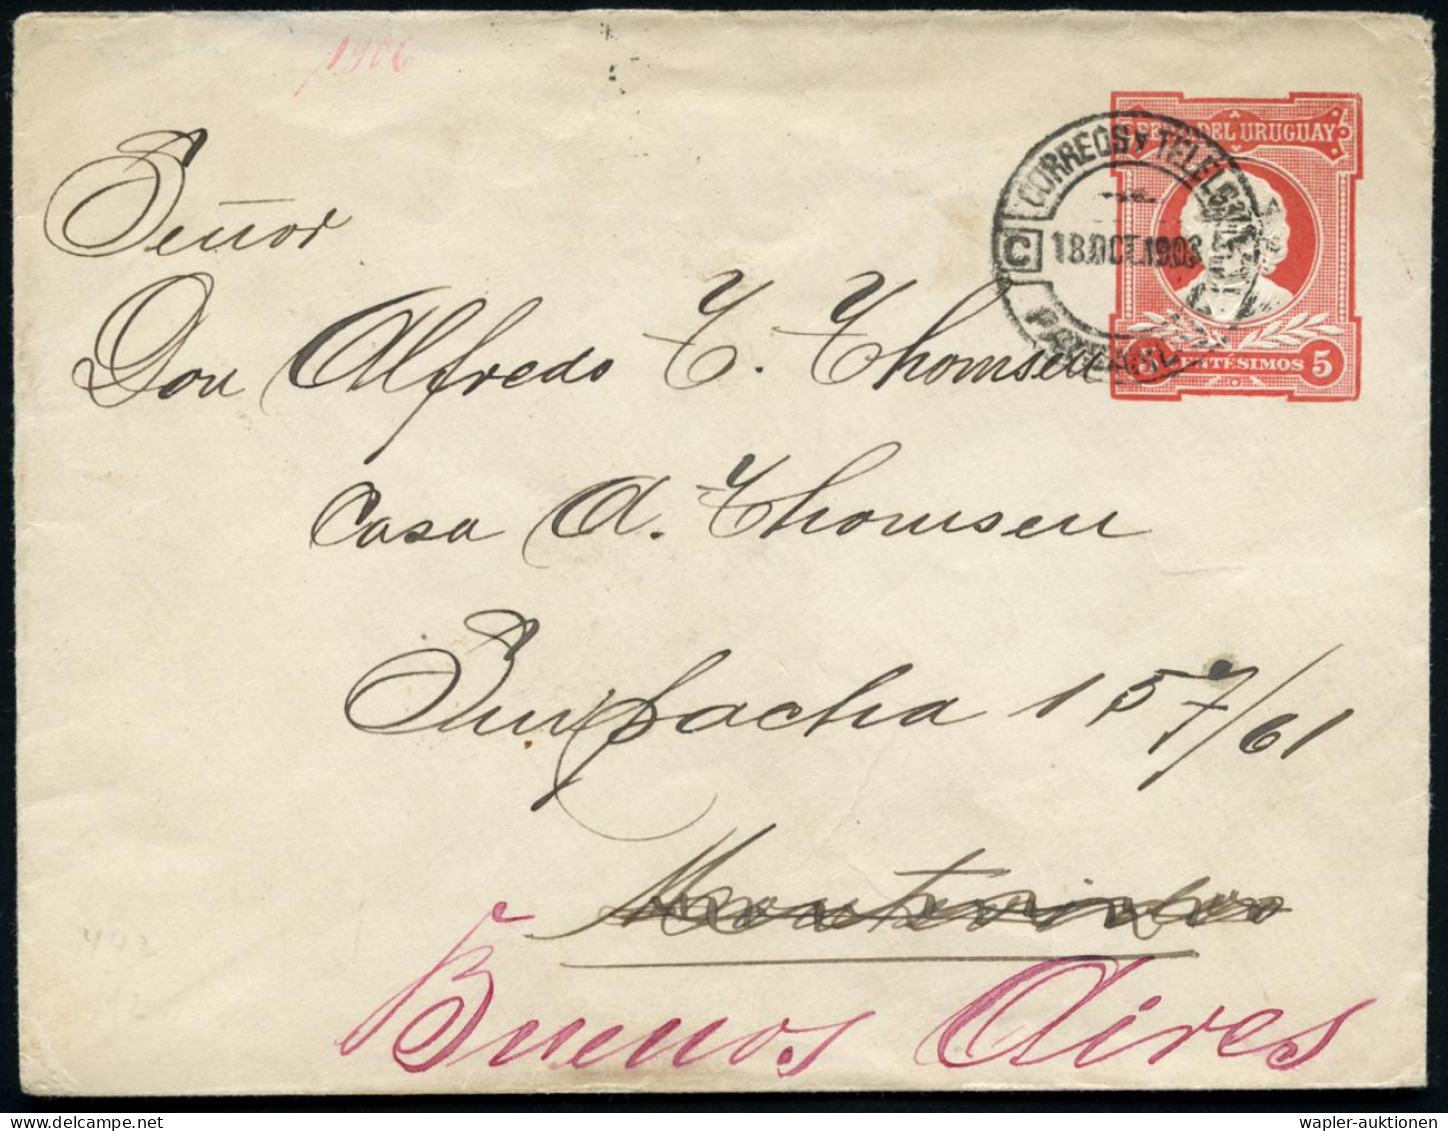 1906
REPÚB. DEL URUGUAY
CORREOS Y TELEG
C
18.OCT.1906
CENTÉSIMOS 5
Señor
Don Alfredo T. Thomsen
Casa A. Thomsen
Suipacha 157/61
Montevideo
Buenos Aires
442
wapler-auktionen